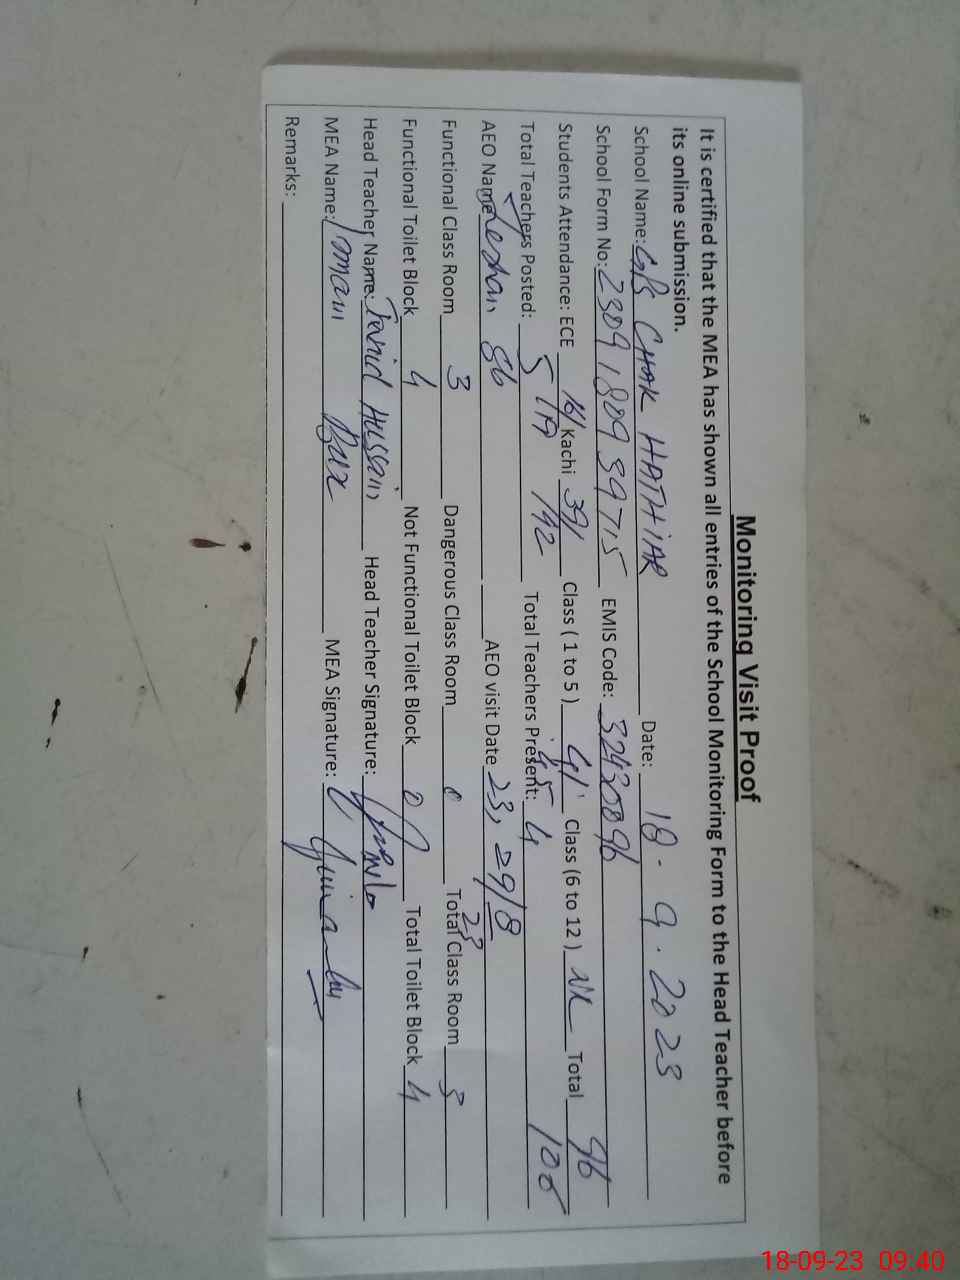 Monitoring Visit Proof
It is certified that the MEA has shown all entries of the School Monitoring Form to the Head Teacher before
its online submission.
School Name: GPS CHAK HATHIAR Date: 18.9.2023
School Form No: 2309180989715 EMIS Code: 32430096
Students Attendance: ECE 16/ Kachi 39/ Class (1 to 5) 41 Class (6 to 12) Total 96
Total Teachers Posted: 5 Total Teachers Present: 4 100
AEO Name Zeshan AEO visit Date 23, 29/8
23
Functional Class Room 3 Dangerous Class Room 0 Total Class Room 3
Functional Toilet Block 4 Not Functional Toilet Block 0 Total Toilet Block 4
Head Teacher Name: Javid Hussain Head Teacher Signature:
MEA Name: Imam Bux MEA Signature:
Remarks:
18-09-23 09:40